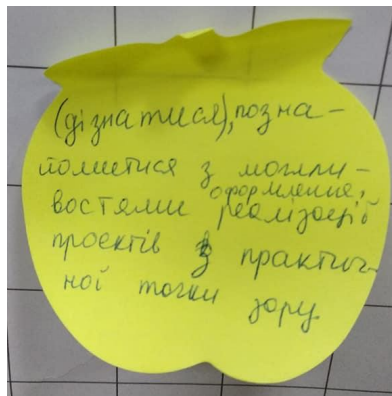 (дізнатися), позна-
йомитися з можли-
оформлення,
востями реалізації
проектів з практич-
ної точки зору